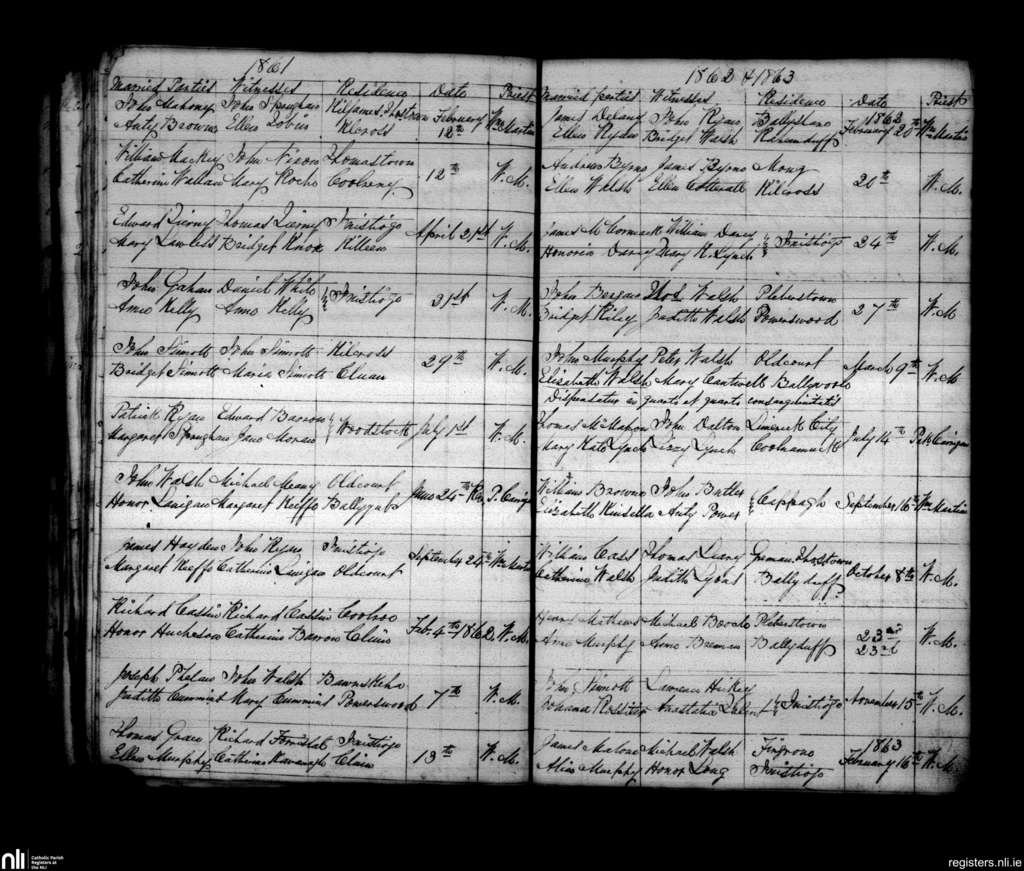 1861
Married Parties Witnesses Residence Date Priest
John Mahony John Spruhan Kiljames, Thostown February Wm Martin
Anty Browne Ellen Tobin Kilcross 12th
William Mackey John Nixon Thomastown
Catherine Wallace Mary Roche Coolreny 12th W. M.
Edward Tierny Thomas Tierny Inistioge
Mary Lawless Bridget Knox Killeen April 21st W. M.
John Gahan Daniel White
Anne Kelly Anne Kelly Inistioge 21st W. M.
John Sinnott John Sinnott Kilcross
Bridget Sinnott Maria Sinnott Cluan 29th W. M.
Patrick Ryan Edward Barron
Margaret Sprughan Jane Moran Woodstock July 1st W. M.
John Walsh Michael Meany Oldcourt
Honor Lanigan Margaret Keeffe Ballygub June 24th P.
James Hayden John Ryan Inistioge
Margaret Keeffe Catherine Lanigan Oldcourt September 24th Wm Martin
Richard Cassin Richard Cassin Coolroe
Honor Hutcheson Catherine Barron Cluin Feb. 4th 1862 W. M.
Joseph Phelan John Walsh
Judith Cummins Mary Cummins Powerswood 7th W. M.
Thomas Grace Richard Inistioge
Ellen Murphy Catherine Kavanagh Cluin 13th W. M.
1862 & 1863
Married parties Witnesses Residence Date Priest
James Delany John Ryan 1862
Ellen Ryan Bridget Walsh February 20th Wm Martin
Andrew Byrne James Byrne Mong
Ellen Walsh Ellen Cotterall Kilcross 20th W. M.
James McCormack William Darcy
Honoria Darcy Mary K. Lynch Inistioge 24th W. M.
John Bergan Thos Walsh Pleberstown
Bridget Riley Judith Walsh Powerswood 27th W. M.
John Murphy Peter Walsh Oldcourt
Elizabeth Walsh Mary Cantwell Ballyvoole March 9th W. M.
Dispensatus in quarto et quarto consanguinitatis
Thomas McMahon John Dalton Limerick City
Mary Kate Lynch Lizzy Lynch Coolnamuck July 14th
William Browne John Butler
Elizabeth Kinsella Anty Power Cappagh September 16th Wm Martin
William Cass Thomas Leary
Catherine Walsh Judith Ballyduff October 8th W. M.
Henry Mathews Michael Pleberstown
Anne Murphy Anne Brenan Ballyduff 23rd W. M.
John Sinnott Lawrence Hickey
Johanna Rossiter Anastatia Inistioge November 15th W. M.
James Malone Michael Walsh 1863
Alice Murphy Honor Long Inistioge February 16th W. M.
nli Catholic Parish
Registers at
the NLI
registers.nli.ie